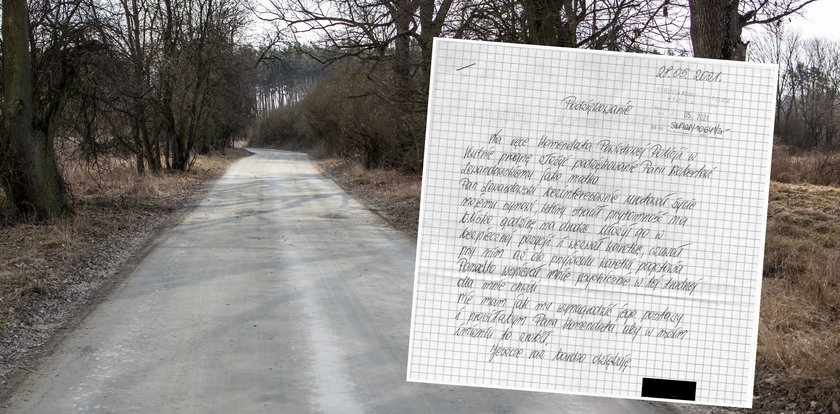 28.05.2021.
Podziękowanie
Na ręce Komendanta Powiatowej Policji w
Kutnie pragnę złożyć podziękowanie Panu
Lewandowskiemu jako matka
Pan Lewandowski bezinteresownie uratował życie
mojemu synowi, który stracił przytomność na
godzinę na drodze. Ułożył go w
bezpiecznej pozycji i wezwał karetkę, czuwał
przy nim aż do przyjazdu karetki pogotowia
Ponadto wspierał mnie psychicznie w tej trudnej
dla mnie chwili
Nie mam jak mu wynagrodzić jego postawy
i prosiłabym Pana Komendanta, aby w moim
imieniu to zrobił.
Jeszcze raz bardzo dziękuję.